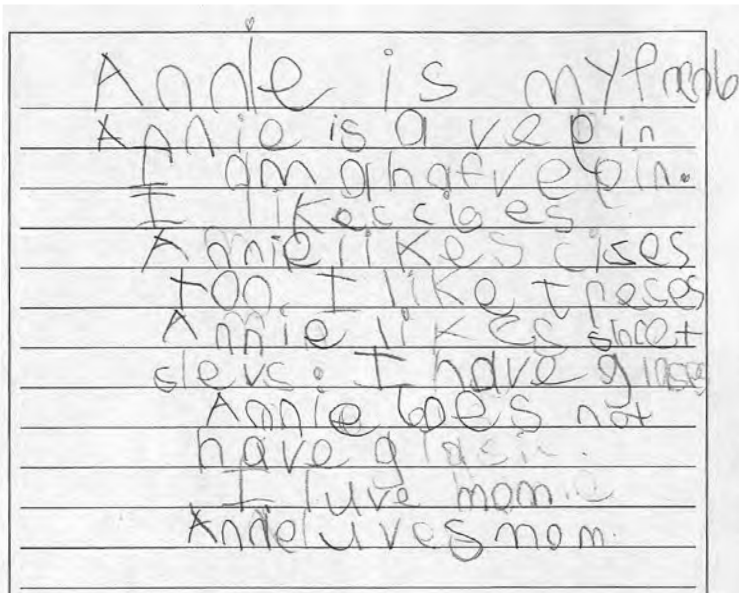 Annie is my frenb
Annie is a ve pin
I am a hafve pin.
I like
Annie likes cises
too. I like t reses
Annie likes shcet
slevs. I have glases
Annie boes not
have glasis.
I luve mom
Annie luves mom.